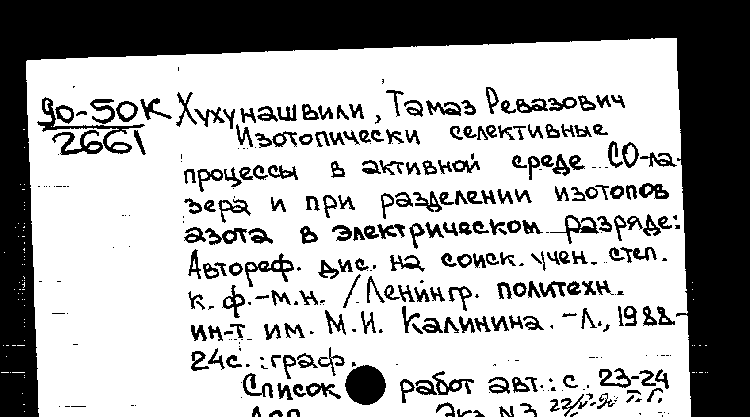 90-50К
2661
Хухунашвили, Тамаз Ревазович
Изотопически селективные
процессы в активной среде СО-ла-
зера и при разделении изотопов
азота в электрическом разряде:
Автореф. дис. на соиск. учен. степ.
к. ф.-м.н. / Ленингр. политехн.
ин-т им. М.И. Калинина. - Л., 1988.-
24с. : граф.
Список работ авт.: с. 23-24
Экз. N3